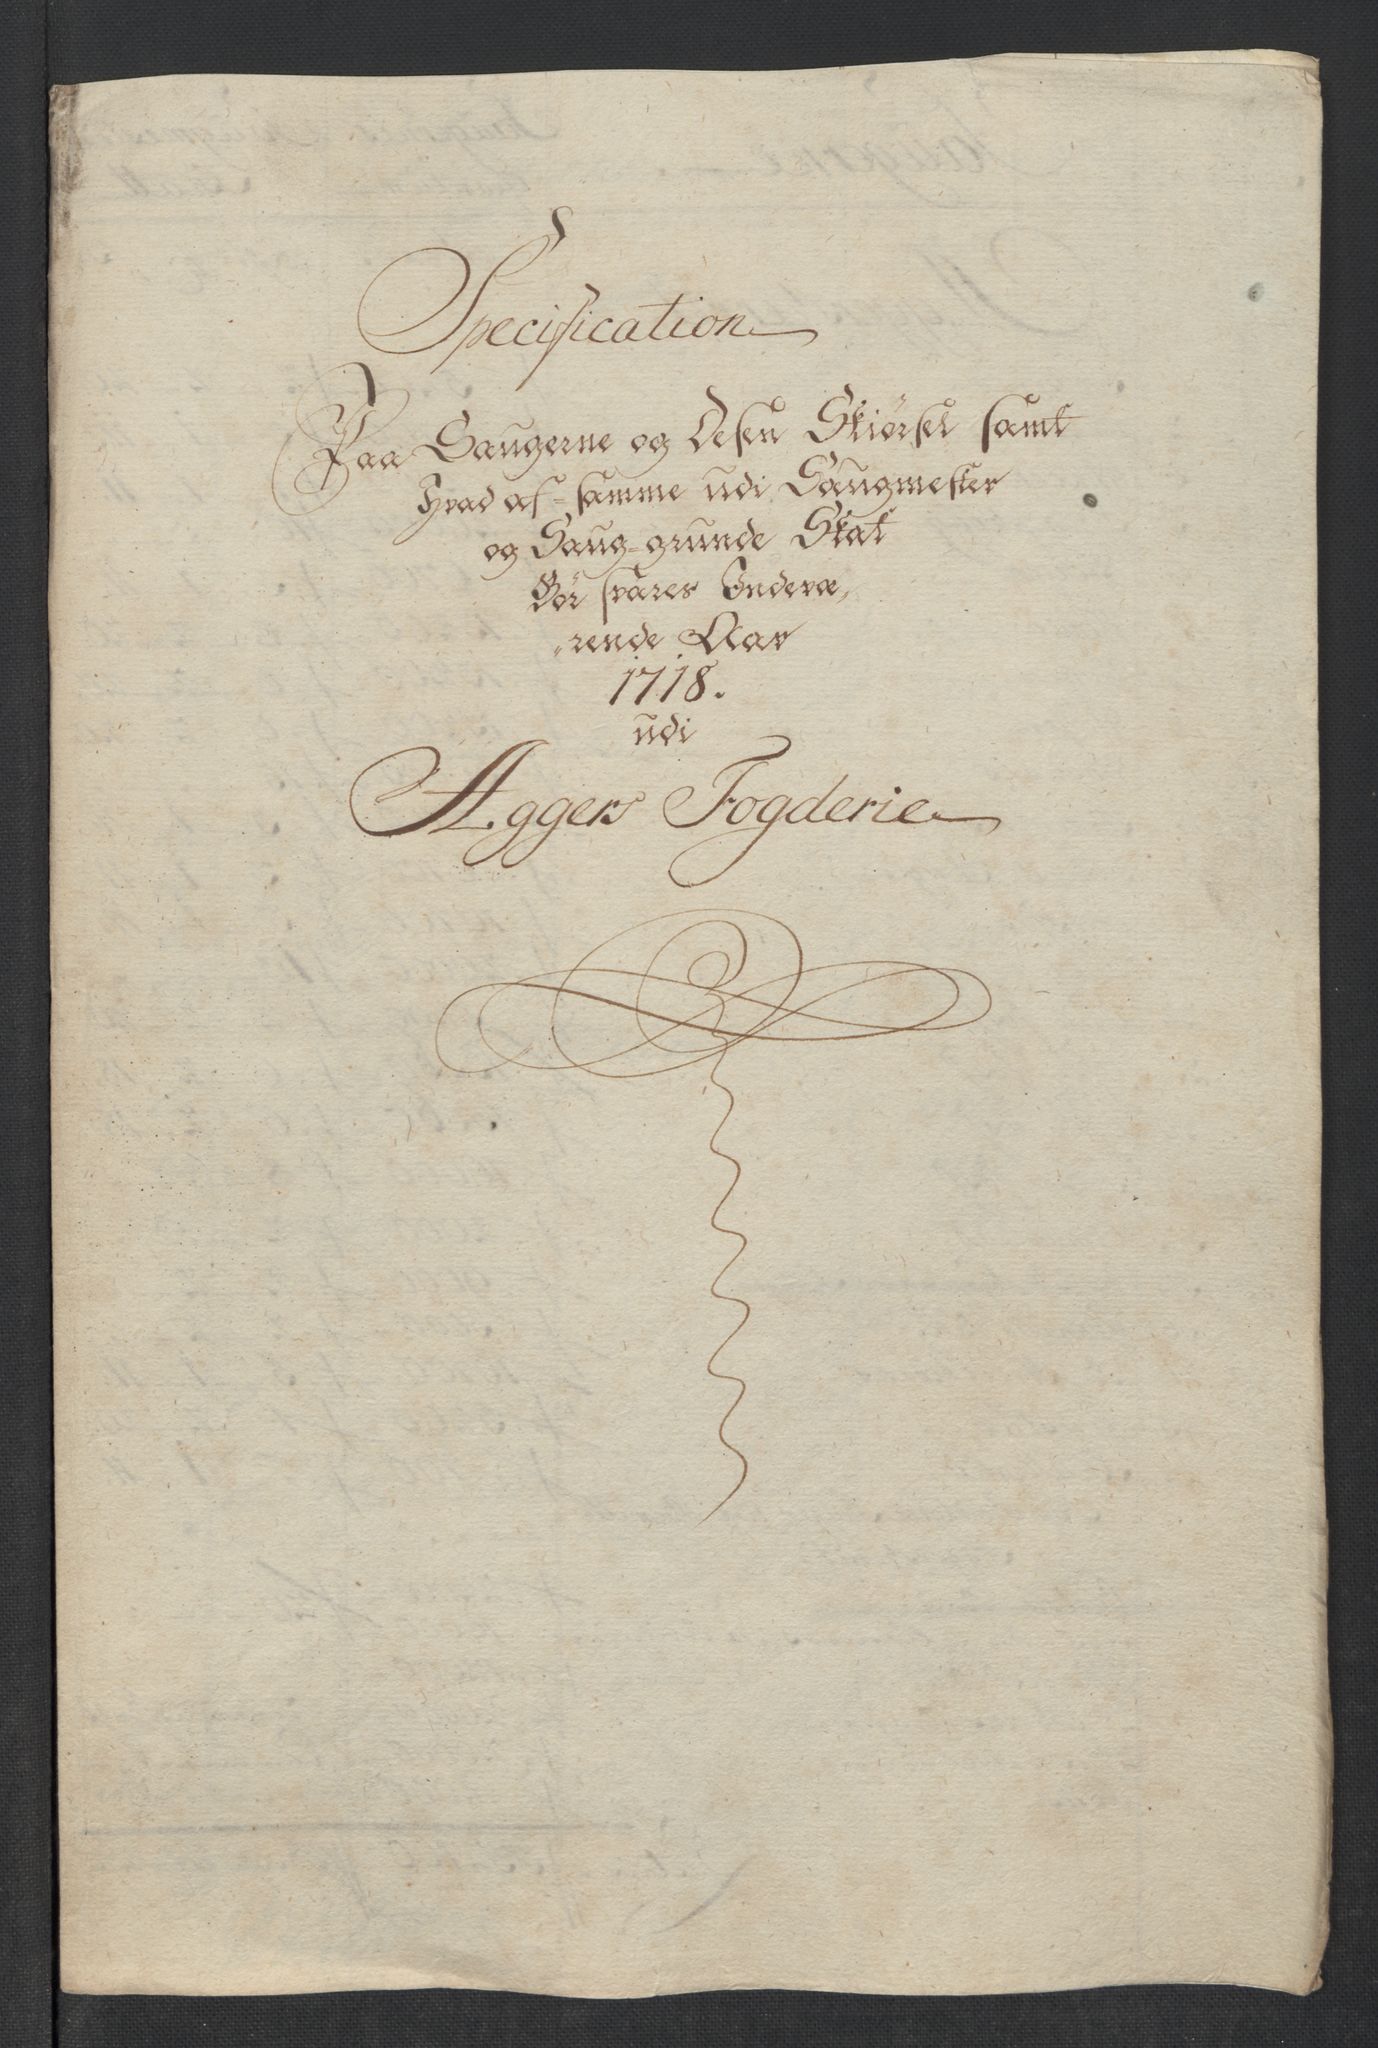 Specification
Paa Saugerne og Desen Skiørsel samt
Hvad af-samme udi Saugmester
og Saug-grunde Skat
Bör svares Indevæ,,
,,rende Aar
1718.
udi
Aggers Fogderie